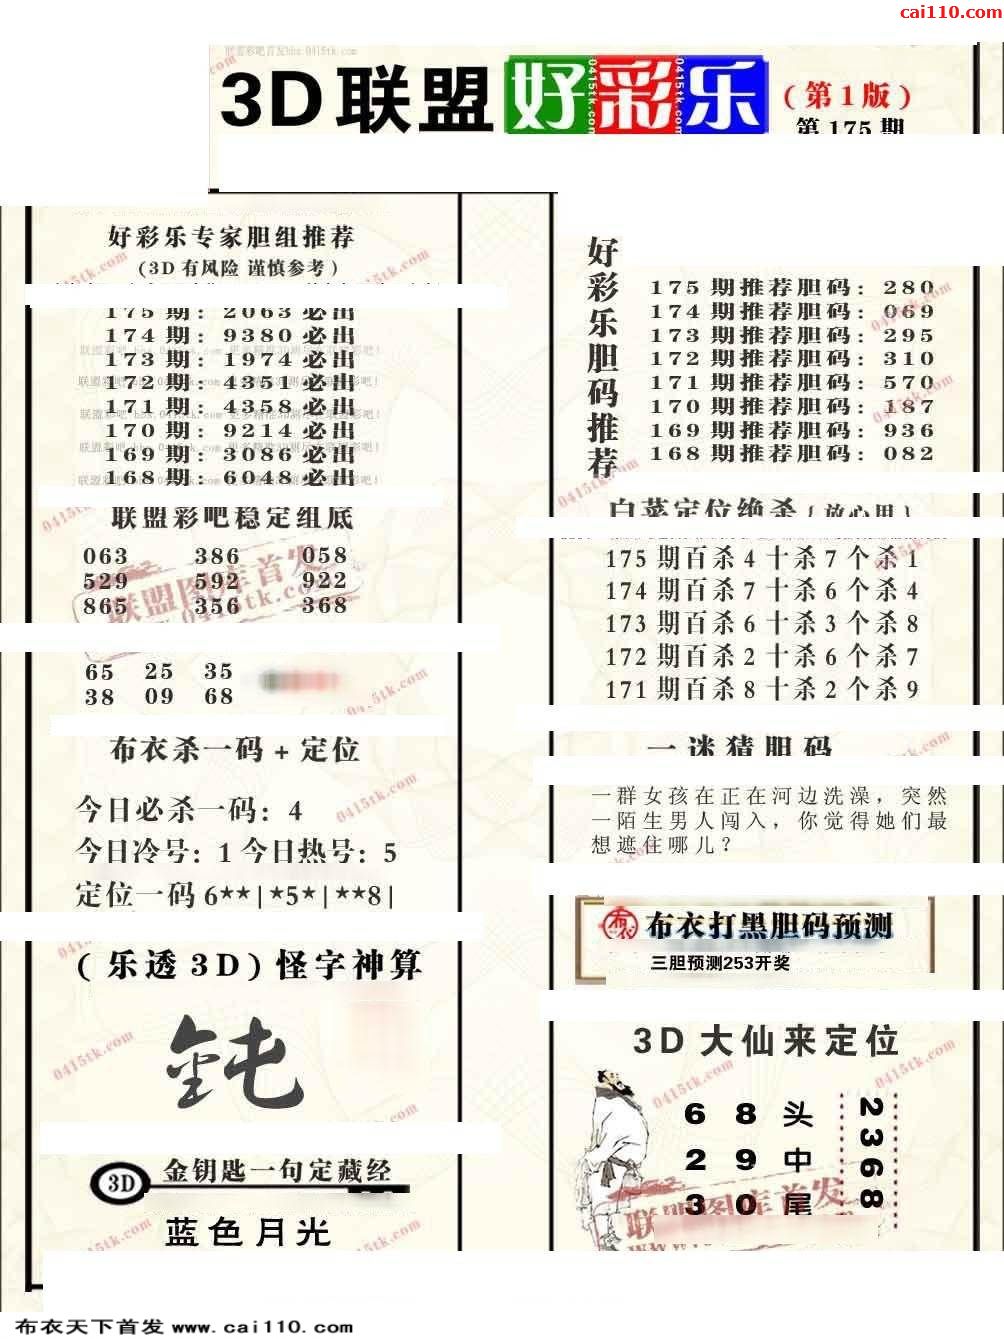 cai110.com
联盟彩吧首发bbs.0415tk.com
3D联盟好彩乐(第1版)
第175期
好彩乐专家胆组推荐
(3D有风险 谨慎参考)
175期: 2063必出
174期: 9380必出
173期: 1974必出
172期: 4351必出
171期: 4358必出
170期: 9214必出
169期: 3086必出
168期: 6048必出
联盟彩吧稳定组底
063 386 058
529 592 922
865 356 368
联盟图库首发
0415tk.com
65 25 35
38 09 68
布衣杀一码+定位
今日必杀一码: 4
今日冷号: 1 今日热号: 5
定位一码6**|*5*|**8|
(乐透3D)怪字神算
3D 金钥匙一句定藏经
蓝色月光
好彩乐胆码推荐
175期推荐胆码: 280
174期推荐胆码: 069
173期推荐胆码: 295
172期推荐胆码: 310
171期推荐胆码: 570
170期推荐胆码: 187
169期推荐胆码: 936
168期推荐胆码: 082
白菜定位绝杀{放心用}
175期百杀4十杀7个杀1
174期百杀7十杀6个杀4
173期百杀6十杀3个杀8
172期百杀2十杀6个杀7
171期百杀8十杀2个杀9
一迷猜胆码
一群女孩在正在河边洗澡，突然
一陌生男人闯入，你觉得她们最
想遮住哪儿？
布衣 布衣打黑胆码预测
三胆预测253开奖
3D大仙来定位
6 8 头
2 9 中
3 0 尾
2368
联盟图库首发
布衣天下首发 www.cai110.com